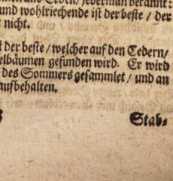 und wohlriechende ist der beste / der
nicht.
der beste / welcher auf den Cedern /
elbäumen gefunden wird. Er wird
des Sommers gesammlet / und an
aufbehalten.
Stab-